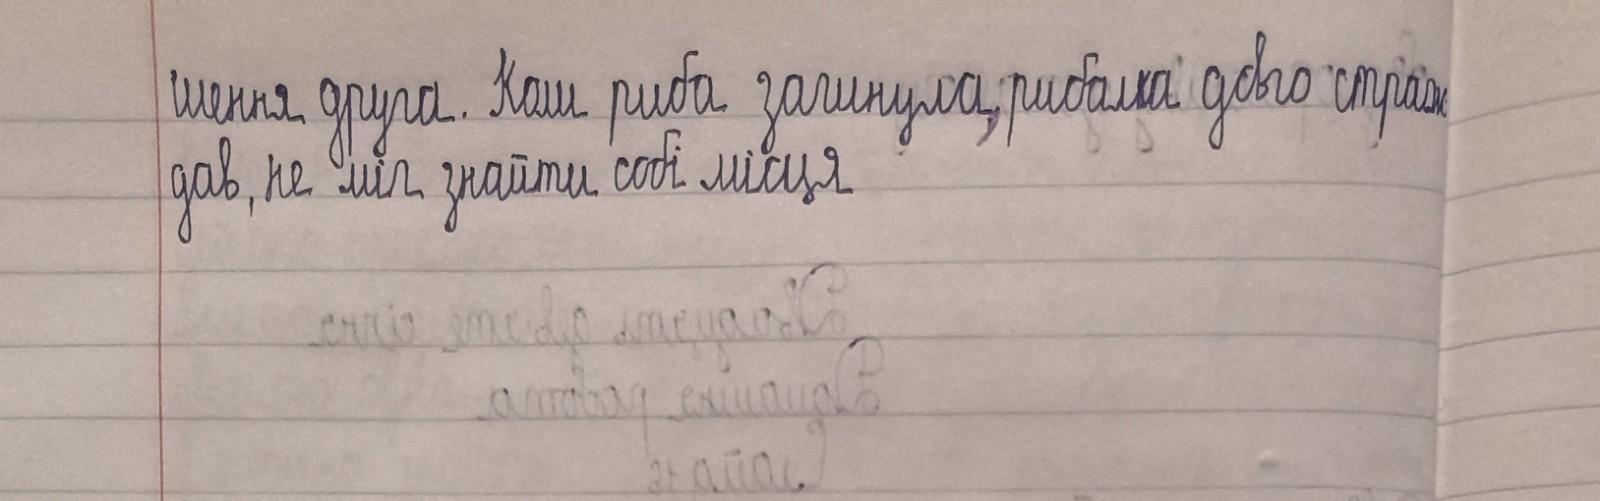 шення друга. Коли риба загинула, рибалка довго страж
дав, не міг знайти собі місця